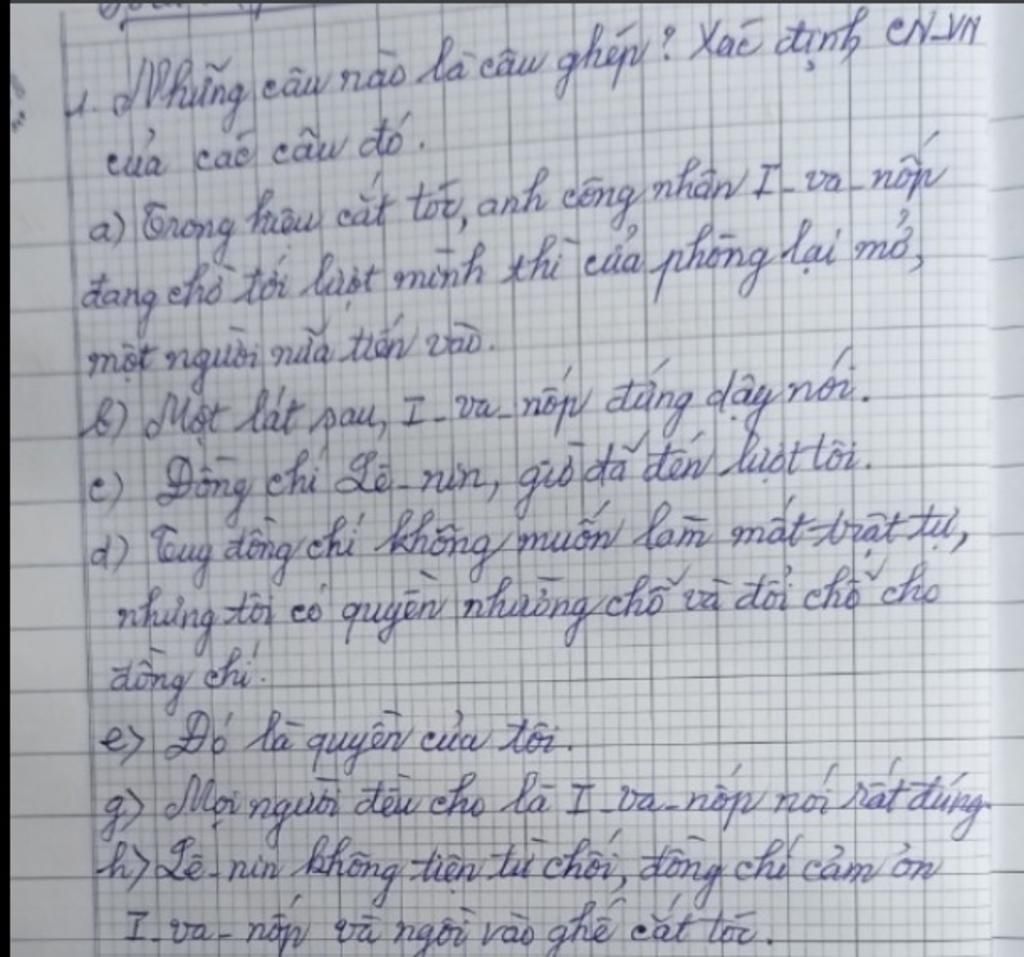 1. Những câu nào là câu ghép? Xác định CN-VN
của các câu đó.
a) Trong hiệu cắt tóc, anh công nhân I-va-nốp
đang chờ tới lượt mình thì cửa phòng lại mở,
một người nữa tiến vào.
b) Một lát sau, I-va-nốp đứng dậy nói.
c) Đồng chí Lê-nin, giờ đã đến lượt tôi.
d) Tuy đồng chí không muốn làm mất trật tự,
nhưng tôi có quyền nhường chỗ và đổi chỗ cho
đồng chí.
e) Đó là quyền của tôi.
g) Mọi người đều cho là I-va-nốp nói rất đúng.
h) Lê-nin không tiện từ chối, đồng chí cảm ơn
I-va-nốp và ngồi vào ghế cắt tóc.